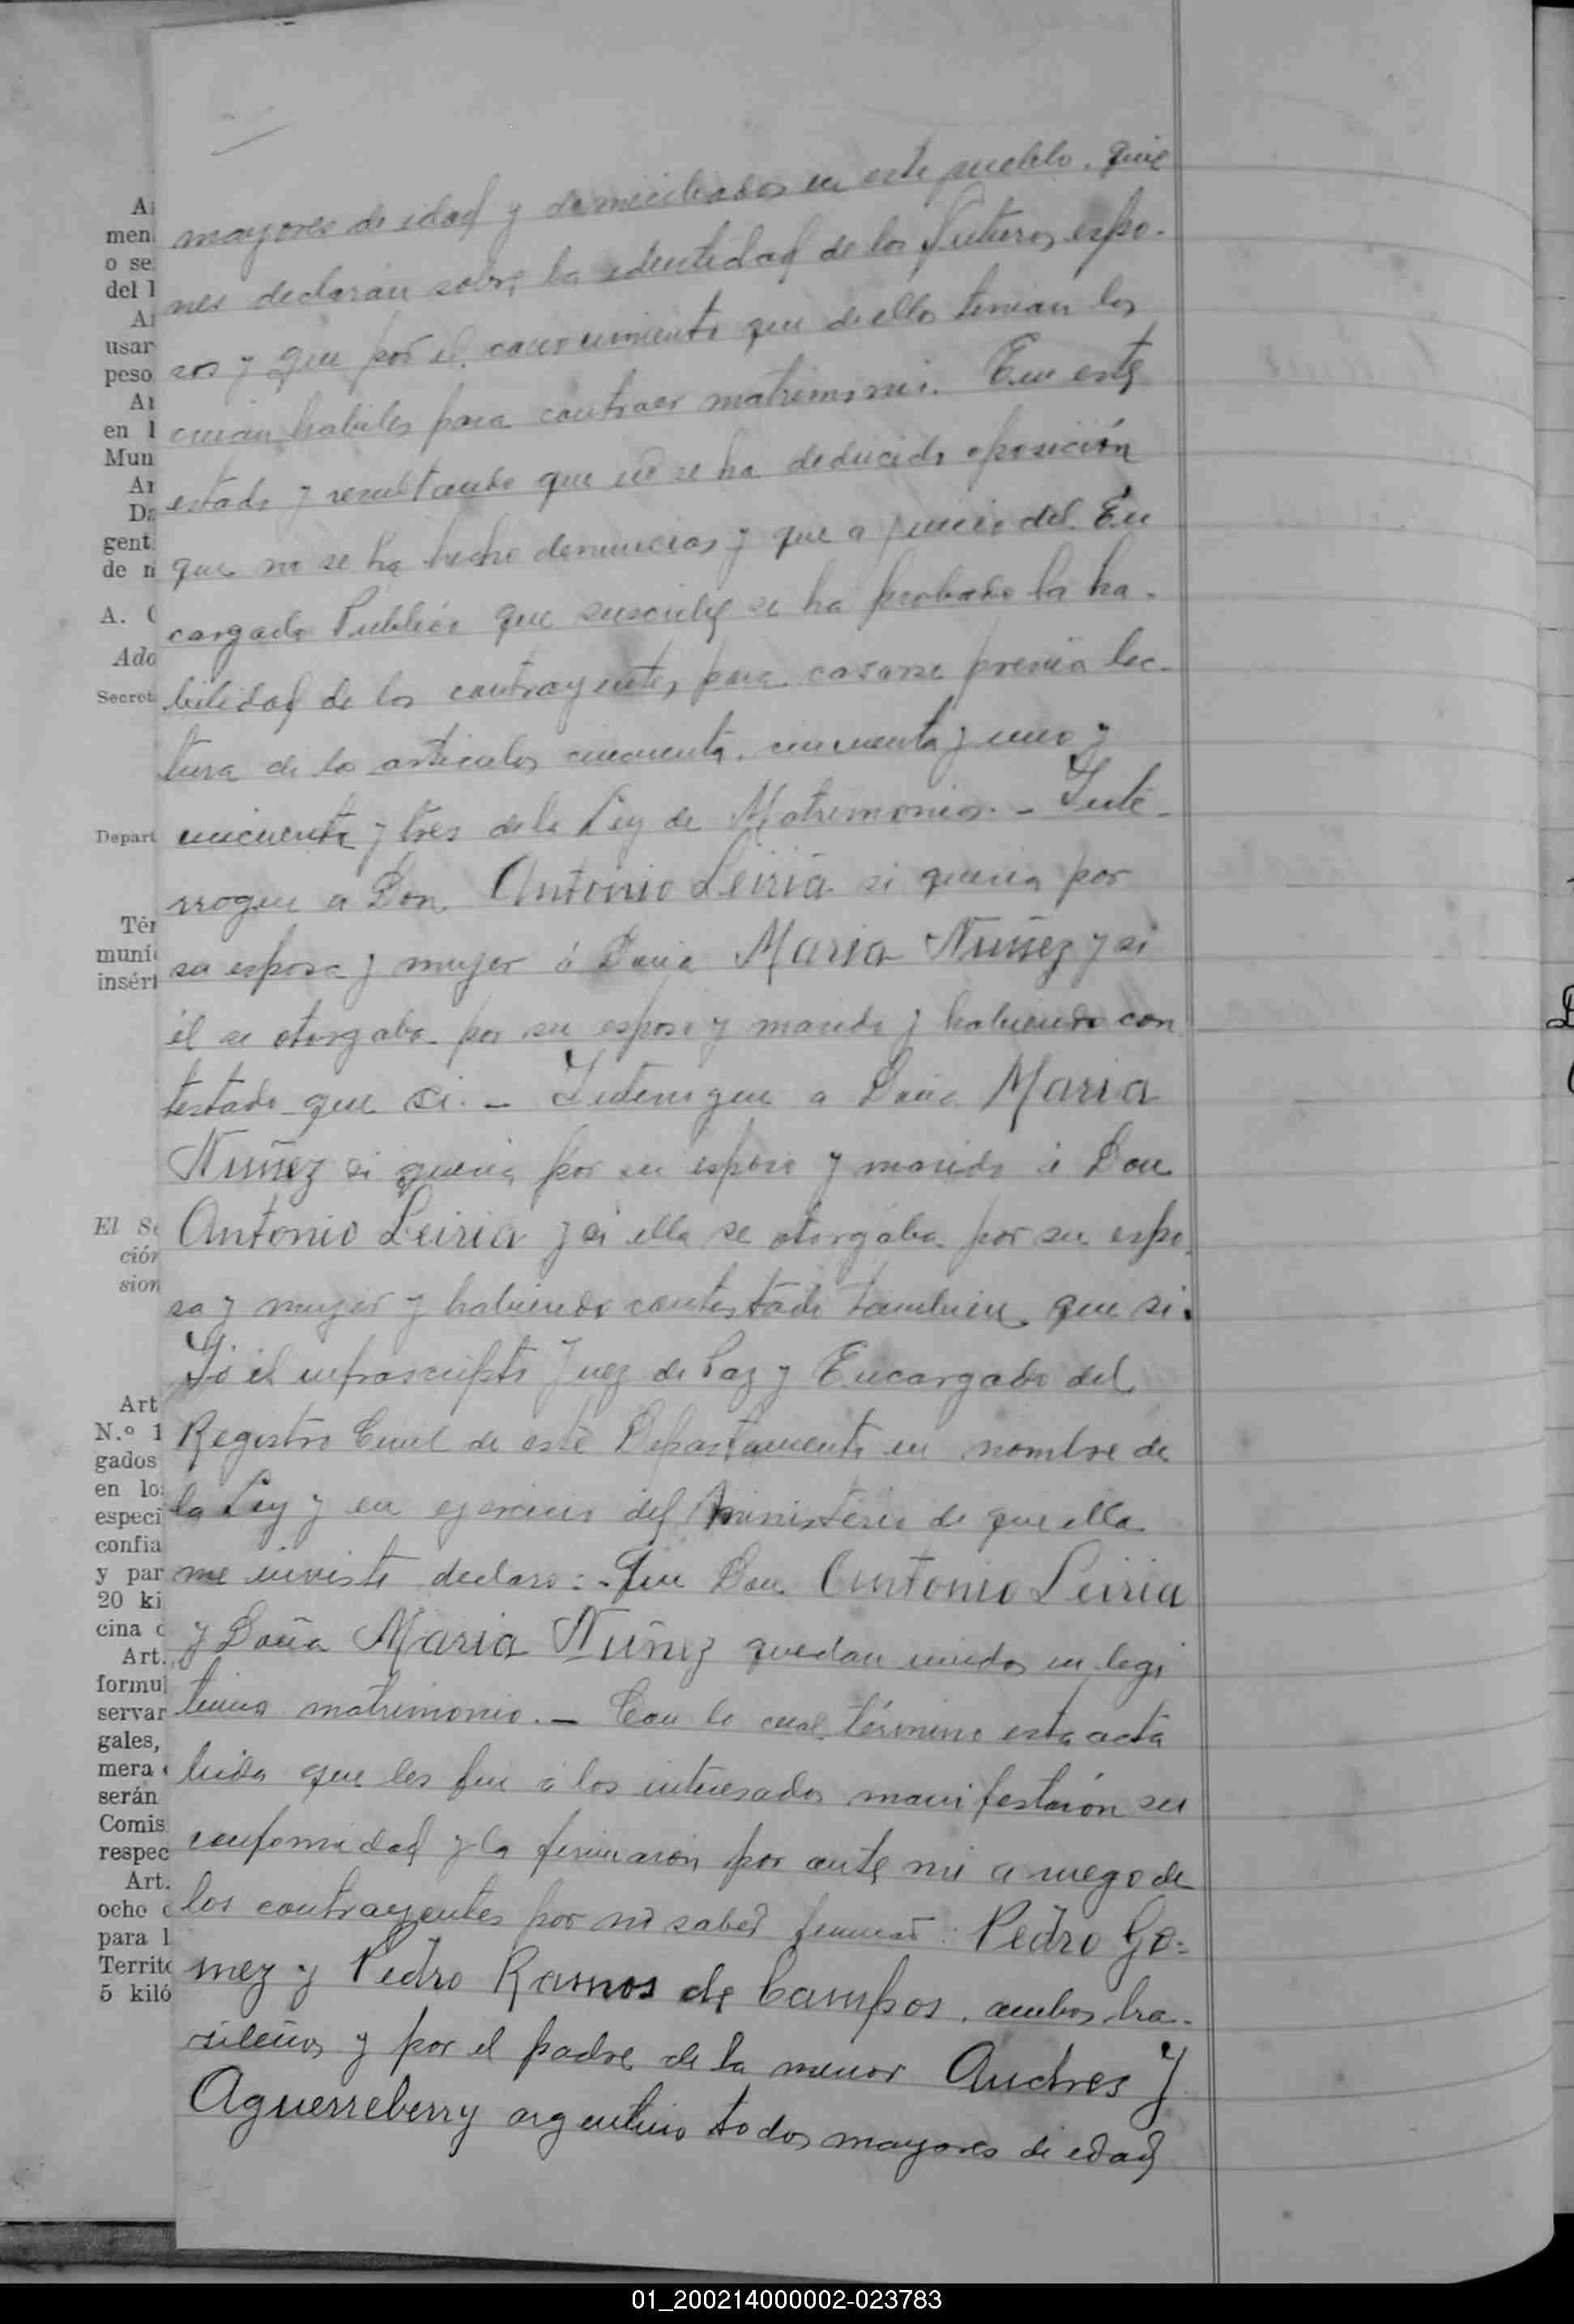 A
men
o se
del l
A
usar
peso
A
en l
Mun
A
D
gent
de n
A. C
Ado
Secret
Depart
Tér
muni
insért
El Se
ción
sion
Art
N.º 1
gados
en lo
especi
confia
y par
20 ki
cina c
Art.
formul
servar
gales,
mera
serán
Comis
respec
Art.
ocho
para l
Territo
5 kiló
mayores de edad y domiciliados en este pueblo. quie
nes declaran sobre la identidad de los futuros espo-
sos y que por el conocimiento que de ellos tenian los
creian habiles para contraer matrimonio. En este
estado y resultando que no se ha deducido oposición
que no se ha hecho denuncias y que a juicio del En
cargado Publico que suscribe se ha probado la ha-
bilidad de los contrayentes para casarse previa lec-
tura de lo articulos cincuenta. cincuenta y uno y
cincuenta y tres de la Ley de Matrimonio. - Inte-
rrogue a Don Antonio Leiria si queria por
su esposa y mujer á Doña Maria Nuñez y si
él se otorgaba por su esposo y marido y habiendo con
testado que si. - Interrogue a Doña Maria
Nuñez si queria por su esposo y marido á Don
Antonio Leiria y si ella se otorgaba por su espo
sa y mujer y habiendo contestado tambien que si.
Yo el infrascripto Juez de Paz y Encargado del
Registro Civil de este Departamento en nombre de
la Ley y en ejercicio del Ministerio de que ella
me inviste declaro: - Que Don Antonio Leiria
y Doña Maria Nuñez quedan unidos en legi
timo matrimonio. - Con lo cual término esta acta
leida que les fue á los interesados manifestarón su
conformidad y la firmarón por ante mi a ruego de
los contrayentes por no saber firmar: Pedro Go-
mez y Pedro Ramos de Campos, ambos bra-
sileños y por el padre de la menor Andres J
Aguerreberry argentino todos mayores de edad
01_200214000002-023783